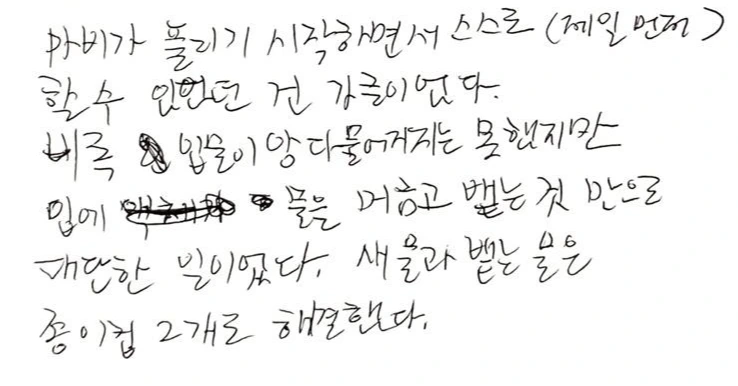 마비가 풀리기 시작하면서 스스로 (제일 먼저)
할 수 있었던 건 가글이었다.
비록 입물이 앙 다물어지지는 못했지만
입에 물은 머금고 뱉는 것 만으로
대단한 일이었다. 새 물과 뱉는 물은
종이컵 2개로 해결한다.